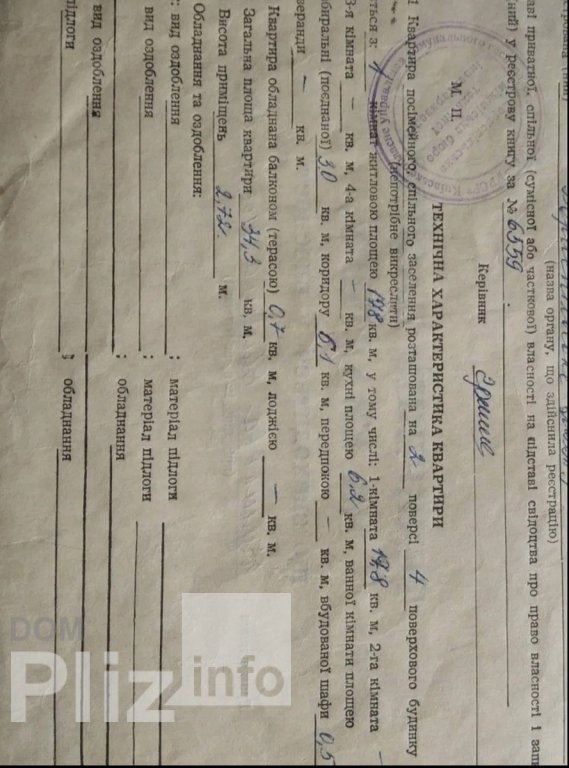 (назва органу, що здійснила реєстрацію)
праві приватної, спільної (сумісної або часткової) власності на підставі свідоцтва про право власності і
у реєстрову книгу за № 6559
Керівник
М. П.
ТЕХНІЧНА ХАРАКТЕРИСТИКА КВАРТИРИ
1 Квартира посімейного, спільного заселення розташована на 2 поверсі 4 поверхового будинку
(непотрібне викреслити)
з: 1 кімнат житловою площею 17,8 кв. м, у тому числі: 1-кімната 17,8 кв. м, 2-га кімната —
3-я кімната — кв. м, 4-а кімната — кв. м, кухні площею 6,2 кв. м, ванної кімнати площею
(поєднаної) 3,0 кв. м, коридору 6,1 кв. м, передпокою — кв. м, вбудованої шафи 0,5
веранди — кв. м.
Квартира обладнана балконом (терасою) 0,7 кв. м, лоджією — кв. м.
Загальна площа квартири 34,3 кв. м.
Висота приміщень 2,72 м.
Обладнання та оздоблення:
: вид оздоблення ; матеріал підлоги
вид оздоблення ; матеріал підлоги
; обладнання
вид оздоблення
підлоги ; обладнання
DOM
Pliz info